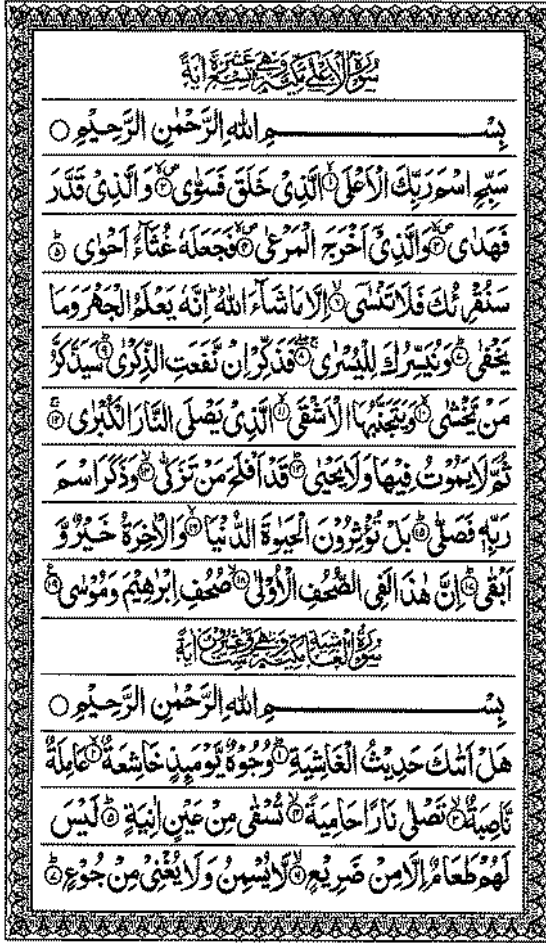 سُوْرَةُ الْاَعْلٰى مَكِّيَّةٌ وَّهِيَ تِسْعَ عَشَرَةَ اٰيَةً
بِسْمِ اللهِ الرَّحْمٰنِ الرَّحِيْمِ ○
سَبِّحِ اسْمَ رَبِّكَ الْاَعْلَى ۙ﴿۱﴾ الَّذِىْ خَلَقَ فَسَوّٰى ۙ﴿۲﴾ وَالَّذِىْ قَدَّرَ
فَهَدٰى ۙ﴿۳﴾ وَالَّذِىْۤ اَخْرَجَ الْمَرْعٰى ۙ﴿۴﴾ فَجَعَلَهٗ غُثَآءً اَحْوٰى ؕ﴿۵﴾
سَنُقْرِئُكَ فَلَا تَنْسٰٓى ۙ﴿۶﴾ اِلَّا مَا شَآءَ اللهُ ؕ اِنَّهٗ يَعْلَمُ الْجَهْرَ وَمَا
يَخْفٰى ؕ﴿۷﴾ وَنُيَسِّرُكَ لِلْيُسْرٰى ۚۖ﴿۸﴾ فَذَكِّرْ اِنْ نَّفَعَتِ الذِّكْرٰى ؕ﴿۹﴾ سَيَذَّكَّرُ
مَنْ يَّخْشٰى ۙ﴿۱۰﴾ وَيَتَجَنَّبُهَا الْاَشْقَى ۙ﴿۱۱﴾ الَّذِىْ يَصْلَى النَّارَ الْكُبْرٰى ۚ﴿۱۲﴾
ثُمَّ لَا يَمُوْتُ فِيْهَا وَلَا يَحْيٰى ؕ﴿۱۳﴾ قَدْ اَفْلَحَ مَنْ تَزَكّٰى ۙ﴿۱۴﴾ وَذَكَرَ اسْمَ
رَبِّهٖ فَصَلّٰى ؕ﴿۱۵﴾ بَلْ تُؤْثِرُوْنَ الْحَيٰوةَ الدُّنْيَا ۖ﴿۱۶﴾ وَالْاٰخِرَةُ خَيْرٌ وَّ
اَبْقٰى ؕ﴿۱۷﴾ اِنَّ هٰذَا لَفِى الصُّحُفِ الْاُوْلٰى ۙ﴿۱۸﴾ صُحُفِ اِبْرٰهِيْمَ وَمُوْسٰى ﴿۱۹﴾
سُوْرَةُ الْغَاشِيَةِ مَكِّيَّةٌ وَّهِيَ سِتٌّ وَّعِشْرُوْنَ اٰيَةً
بِسْمِ اللهِ الرَّحْمٰنِ الرَّحِيْمِ ○
هَلْ اَتٰىكَ حَدِيْثُ الْغَاشِيَةِ ؕ﴿۱﴾ وُجُوْهٌ يَّوْمَئِذٍ خَاشِعَةٌ ۙ﴿۲﴾ عَامِلَةٌ
نَّاصِبَةٌ ۙ﴿۳﴾ تَصْلٰى نَارًا حَامِيَةً ۙ﴿۴﴾ تُسْقٰى مِنْ عَيْنٍ اٰنِيَةٍ ؕ﴿۵﴾ لَيْسَ
لَهُمْ طَعَامٌ اِلَّا مِنْ ضَرِيْعٍ ۙ﴿۶﴾ لَّا يُسْمِنُ وَلَا يُغْنِىْ مِنْ جُوْعٍ ؕ﴿۷﴾